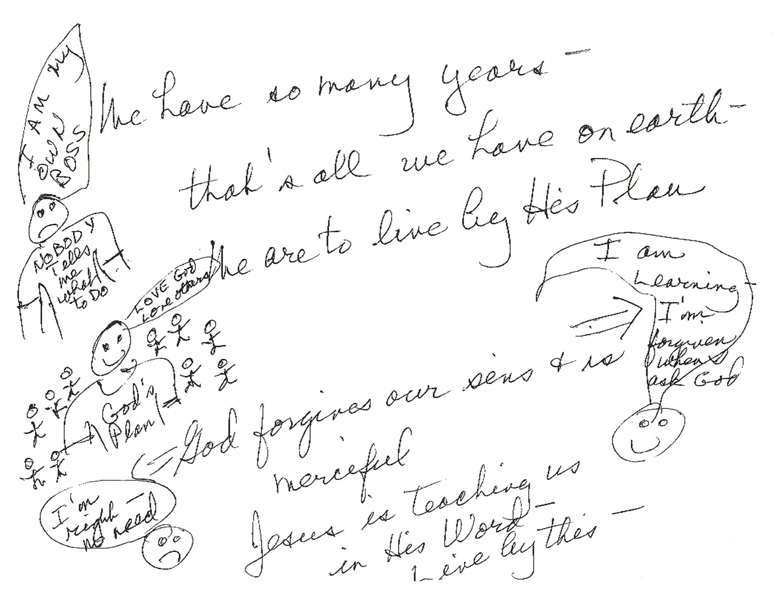 I AM my
OWN
BOSS
We have so many years -
that's all we have on earth -
We are to live by His Plan
NOBODY
tells
me
what
to DO
LOVE God
Love others
God's
Plan
I am
Learning -
I'm
forgiven
when I
ask God
God forgives our sins & is
merciful
I'm
right -
no need
Jesus is teaching us
in His Word -
Live by this -